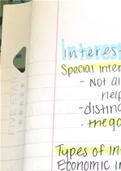 Interes
Special Inter
- Not al
help
- disting
- the go
Types of In
Economic in
FIVE STAR